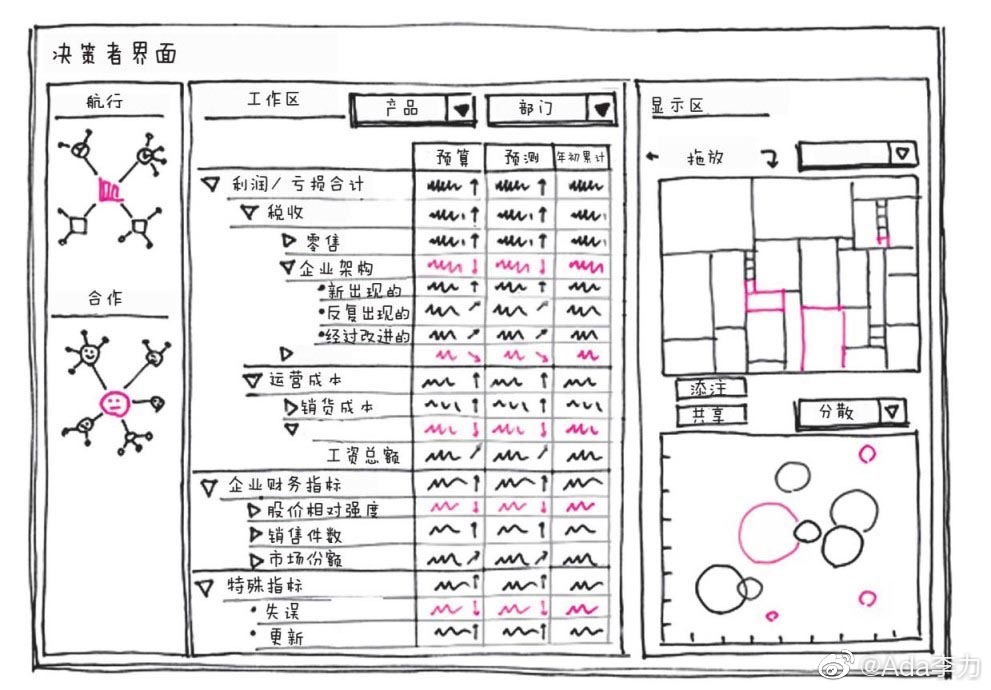 决策者界面
航行
合作
工作区
产品
部门
预算 预测 年初累计
利润/亏损合计
税收
零售
企业架构
•新出现的
•反复出现的
•经过改进的
运营成本
销货成本
工资总额
企业财务指标
股价相对强度
销售件数
市场份额
特殊指标
•失误
•更新
显示区
拖放
添注
共享
分散
@Ada李力